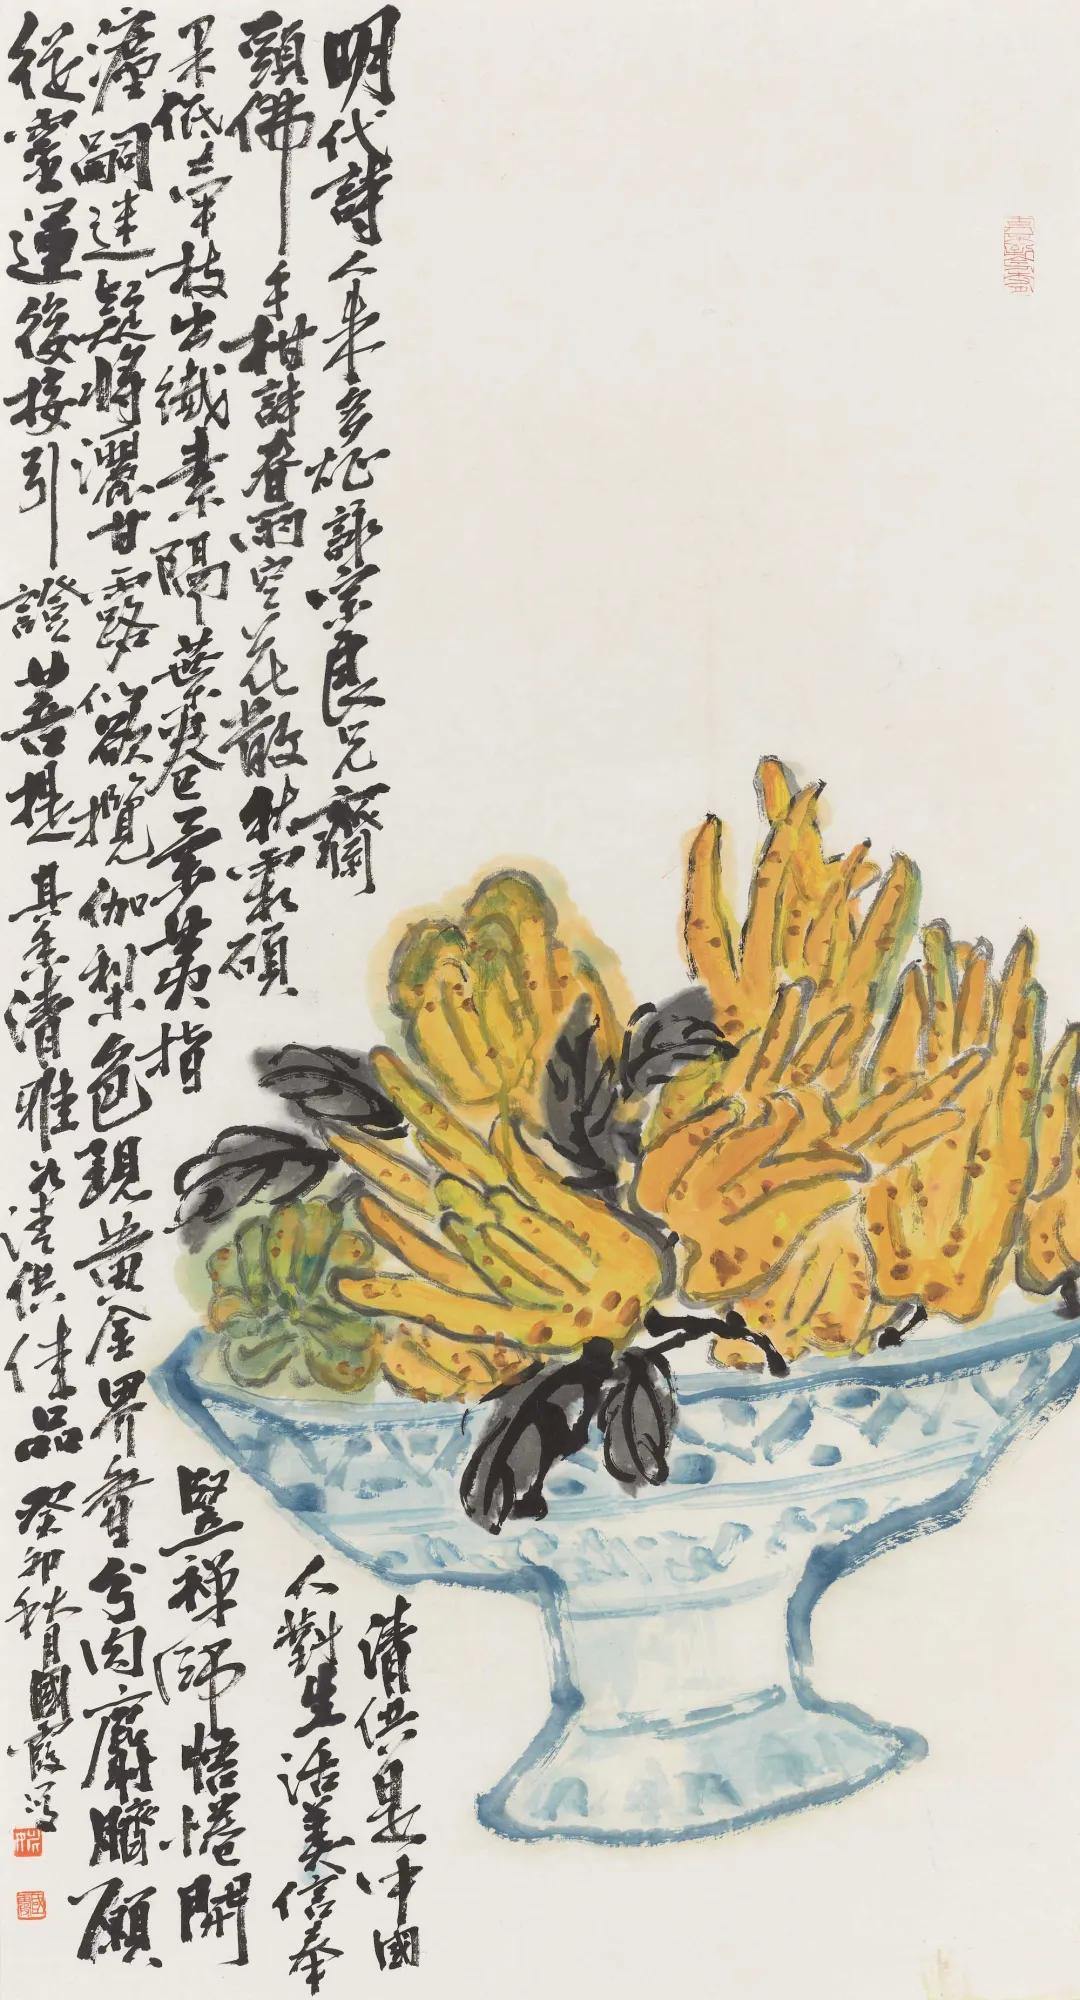 明代詩人朱多炡詠宗良兄齋
頭佛手柑詩春雨空花散秋霜碩
果低牽枝出纖素隔葉卷柔荑指豎禪師悟惓開
灋嗣迷疑將灑甘露似欲攬伽梨色現黃金界香分肉麝臍願
從靈運後接引證菩提其香清雅為清供佳品癸卯秋月國霞寫
清供是中國
人對生活美信奉